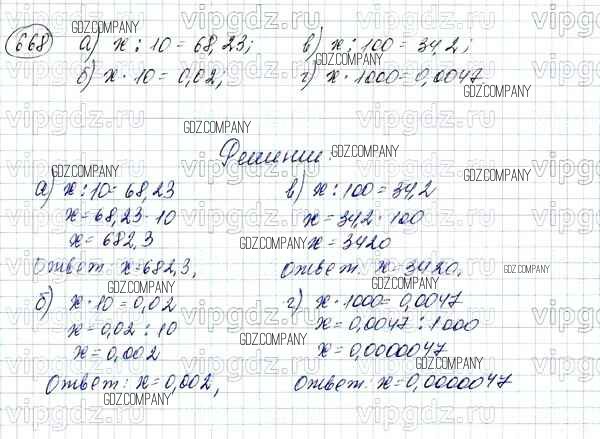 668 а) x : 10 = 68,23; в) x : 100 = 34,2;
б) x · 10 = 0,02; г) x · 1000 = 0,0047
Решение.
а) x : 10 = 68,23
x = 68,23 · 10
x = 682,3
Ответ: x = 682,3,
б) x · 10 = 0,02
x = 0,02 : 10
x = 0,002
Ответ: x = 0,002,
в) x : 100 = 34,2
x = 34,2 · 100
x = 3420
Ответ: x = 3420,
г) x · 1000 = 0,0047
x = 0,0047 : 1000
x = 0,0000047
Ответ: x = 0,0000047
GDZ.COMPANY
vipgdz.ru